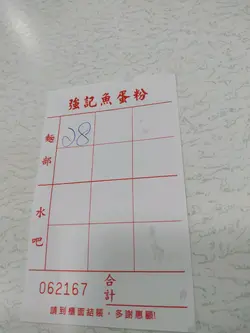 強記魚蛋粉
28
麵部
水吧
062167 合計
請到櫃面結賬，多謝惠顧!